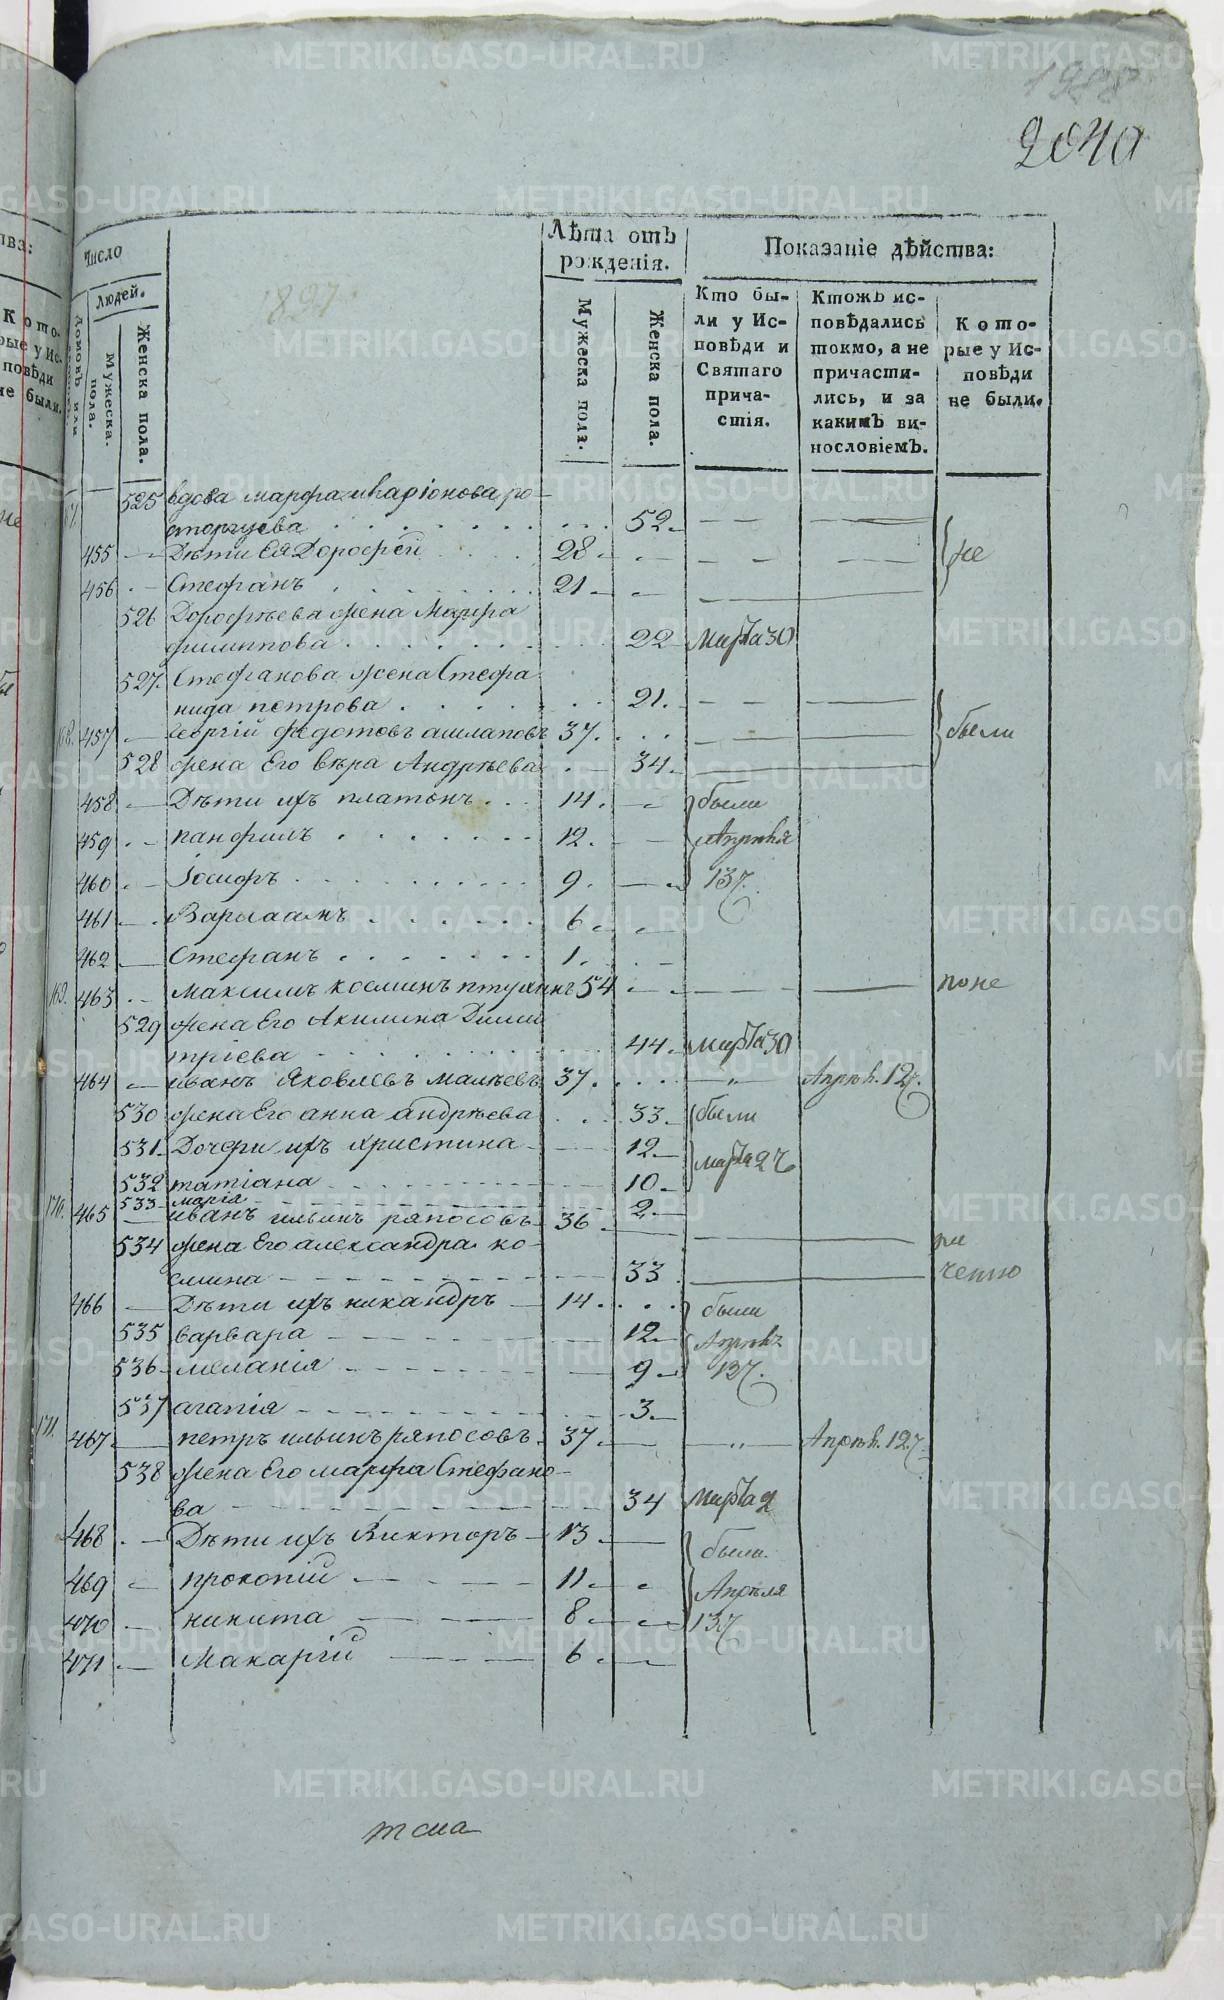 2040
Число
людей.
Домовъ или
Мужеска пола.
Женска пола.
1827
Лѣта отъ рожденія.
Мужеска пола.
Женска пола.
Показаніе дѣйства:
Кто бы-
ли у Ис-
повѣди и
Святаго
прича-
стія.
Ктожъ ис-
повѣдались
токмо, а не
причасти-
лись, и за
какимъ ви-
нословіемъ.
Кото-
рые у Ис-
повѣди
не были.
525 вдова марфа
52
455 Дѣти Ея Дорофей 28 не
456 Стефанъ 21
526 Дорофѣева жена Марфа
филиппова 22 Марта 30
527 Стефанова жена Стефа
нида петрова 21
168. 457 георгій федотовъ 37. были
528 жена Его вѣра Андрѣева 34
458 Дѣти ихъ платонъ 14 были
459 панфилъ 12 Апрѣля
460 Іосифъ 9 13
461 Варлаамъ 6
462 Стефанъ 1
169. 463 максимъ косминъ птухинъ 54 поне
529 жена Его Акилина Дими
тріева 44 марта 30
464 иванъ Яковлевъ 37 Апрѣл. 12
530 жена Его анна андрѣева 33 были
531 Дочери ихъ христина 12 марта
532 татіана 10
533 марія 2
170. 465 иванъ ильинъ ряпосовъ 36
534 жена Его александра ко
смина 33
466 Дѣти ихъ никандръ 14 были
535 варвара 12
536 меланія 9 13
537 агапія 3
171. 467 петръ ильинъ ряпосовъ 37 Апрѣл. 12
538 жена Его марфа Стефано
ва 34 марта 2
468 Дѣти ихъ Викторъ 13 были
469 прокопій 11 Апрѣля
470 никита 8 13
471 Макарій 6
METRIKI.GASO-URAL.RU